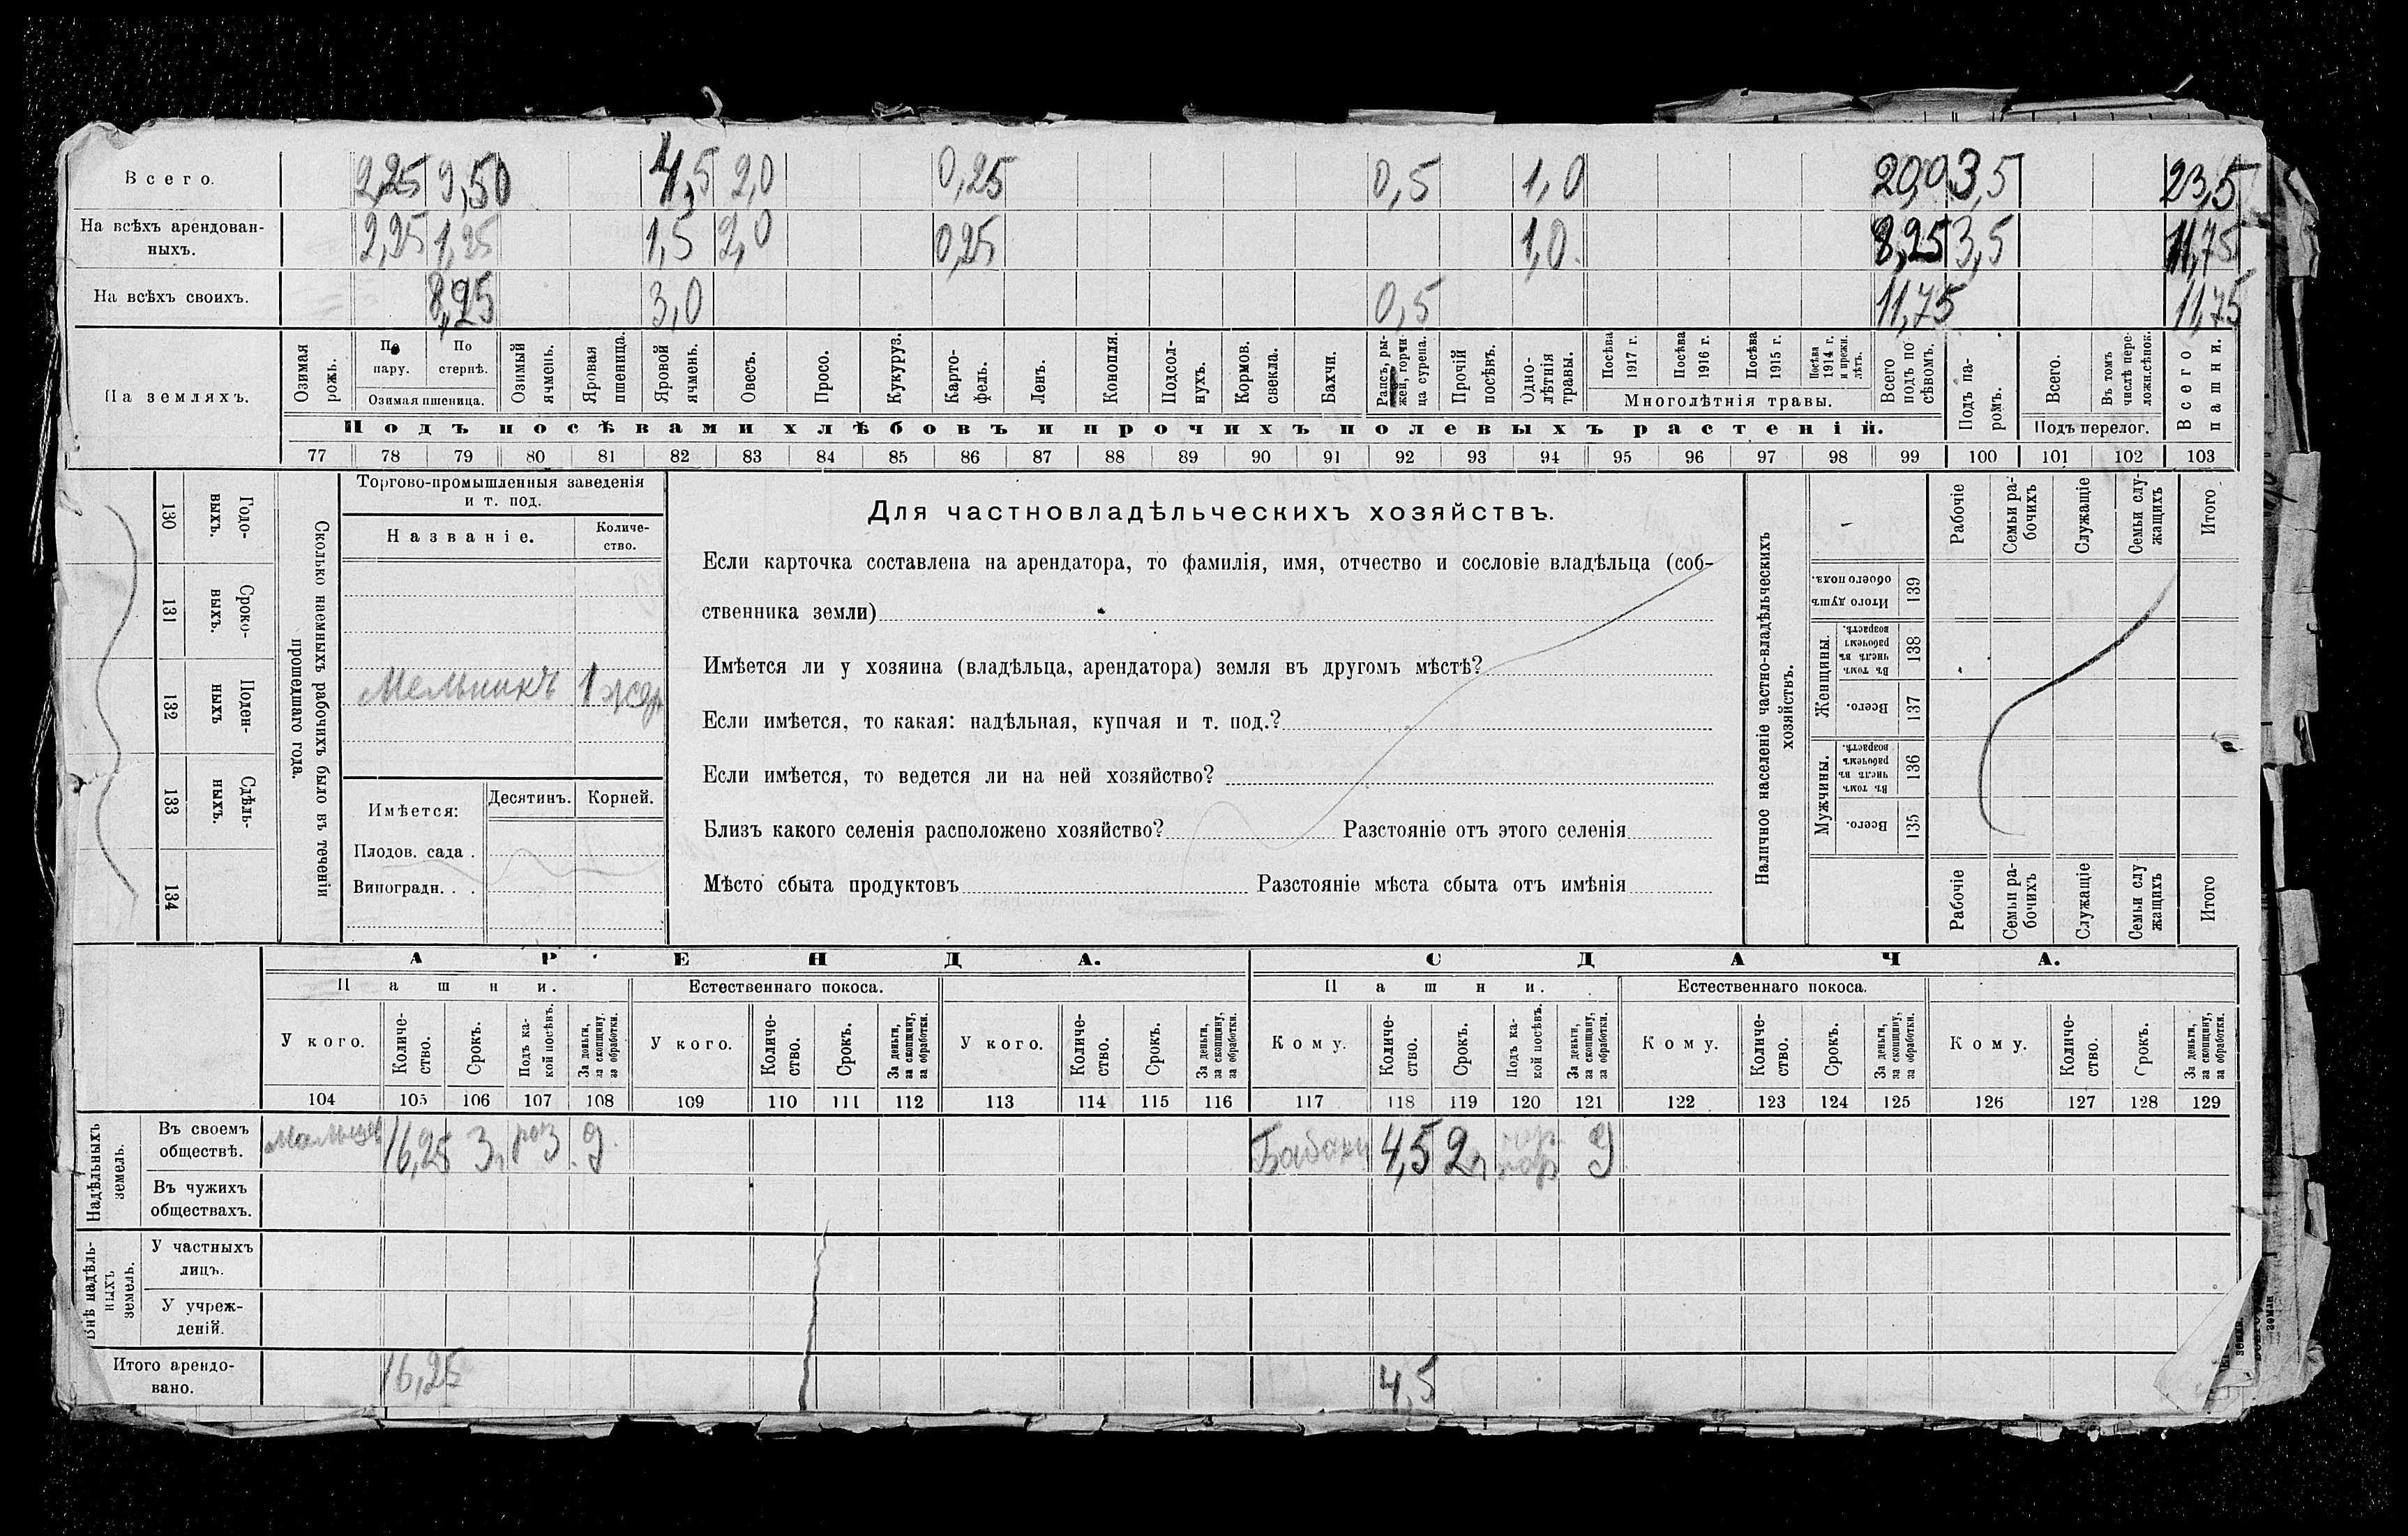 Всего. 2,25 9,50 4,5 2,0 0,25 0,5 1,0 20,0 3,5 23,5
На всѣхъ арендован-
ныхъ. 2,25 1,25 1,5 2,0 0,25 1,0 8,25 3,5 11,75
На всѣхъ своихъ. 8,25 3,0 0,5 11,75 11,75
На земляхъ.
Озимая рожь.
По пару.
По стернѣ.
Озимая пшеница.
Озимый ячмень.
Яровая пшеница.
Яровой ячмень.
Овесъ.
Просо.
Кукуруз.
Карто-
фель.
Ленъ.
Конопля.
Подсол-
нухъ.
Кормов. свекла.
Бахчи.
Рапсъ, ры-
жей, горчи-
ца сурепа.
Прочій посѣвъ.
Одно-
лѣтнія травы.
Посѣва 1917 г.
Посѣва 1916 г.
Посѣва 1915 г.
Посѣва 1914 г. и прежн. лѣтъ.
Многолѣтнія травы.
Всего подъ по-
сѣвомъ.
Подъ па-
ромъ.
Всего.
Въ томъ числѣ пере-
ложн. сѣнок.
Подъ перелог.
Всего пашни.
Подъ посѣвами хлѣбовъ и прочихъ полевыхъ растеній.
77 78 79 80 81 82 83 84 85 86 87 88 89 90 91 92 93 94 95 96 97 98 99 100 101 102 103
130 Годо-
выхъ.
131 Сроко-
выхъ.
132 Поден-
ныхъ
133 Сдѣль-
ныхъ.
134
Сколько наемныхъ рабочихъ было въ теченіи
прошедшаго года.
Торгово-промышленныя заведенія
и т. под.
Названіе.
Количе-
ство.
Мельникъ 1
Имѣется:
Десятинъ.
Корней.
Плодов. сада .
Виноградн. . .
Для частновладѣльческихъ хозяйствъ.
Если карточка составлена на арендатора, то фамилія, имя, отчество и сословіе владѣльца (соб-
ственника земли)
Имѣется ли у хозяина (владѣльца, арендатора) земля въ другомъ мѣстѣ?
Если имѣется, то какая: надѣльная, купчая и т. под.?
Если имѣется, то ведется ли на ней хозяйство?
Близъ какого селенія расположено хозяйство? Разстояніе отъ этого селенія
Мѣсто сбыта продуктовъ Разстояніе мѣста сбыта отъ имѣнія
Наличное населеніе частно-владѣльческихъ
хозяйствъ.
Рабочіе
Семьи ра-
бочихъ
Служащіе
Семьи слу-
жащихъ
Итого
Итого душъ обоего пола. 139
Женщины.
Въ томъ числѣ въ рабочемъ возрастѣ. 138
Всего. 137
Мужчины.
Въ томъ числѣ въ рабочемъ возрастѣ. 136
Всего. 135
Рабочіе
Семьи ра-
бочихъ
Служащіе
Семьи слу
жащихъ
Итого
АРЕНДА.
СДАЧА.
Пашни.
Естественнаго покоса.
Пашни.
Естественнаго покоса.
У кого.
Количе-
ство.
Срокъ.
Подъ ка-
кой посѣвъ.
За деньги,
за скопщину,
за обработки.
У кого.
Количе-
ство.
Срокъ.
За деньги,
за скопщину,
за обработки.
У кого.
Количе-
ство.
Срокъ.
За деньги,
за скопщину,
за обработки.
Кому.
Количе-
ство.
Срокъ.
Подъ ка-
кой посѣвъ.
За деньги,
за скопщину,
за обработки.
Кому.
Количе-
ство.
Срокъ.
За деньги,
за скопщину,
за обработки.
Кому.
Количе-
ство.
Срокъ.
За деньги,
за скопщину,
за обработки.
104 105 106 107 108 109 110 111 112 113 114 115 116 117 118 119 120 121 122 123 124 125 126 127 128 129
Надѣльныхъ
земель.
Въ своемъ
обществѣ. 16,25 3 роз д. 4,5 2 д
Въ чужихъ
обществахъ.
Внѣ надѣль-
ныхъ
земель.
У частныхъ
лицъ.
У учреж-
деній.
Итого арендо-
вано. 16,25 4,5